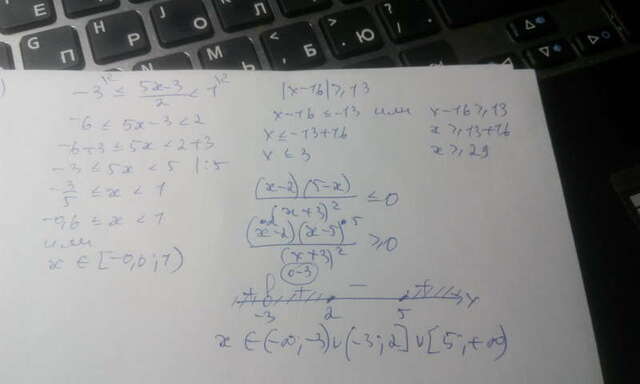 )
-3 ≤ (5x-3)/2 < 1
-6 ≤ 5x-3 < 2
-6+3 ≤ 5x < 2+3
-3 ≤ 5x < 5 |:5
-3/5 ≤ x < 1
-0,6 ≤ x < 1
или
x ∈ [-0,6; 1)
|x-16| ≥ 13
x-16 ≤ -13 или x-16 ≥ 13
x ≤ -13+16 x ≥ 13+16
x ≤ 3 x ≥ 29
(x-2)(5-x)/(x+3)² ≤ 0
(x-2)(x-5)/(x+3)² ≥ 0
+ + − + x
-3 2 5
x ∈ (-∞; -3) ∪ (-3; 2] ∪ [5; +∞)